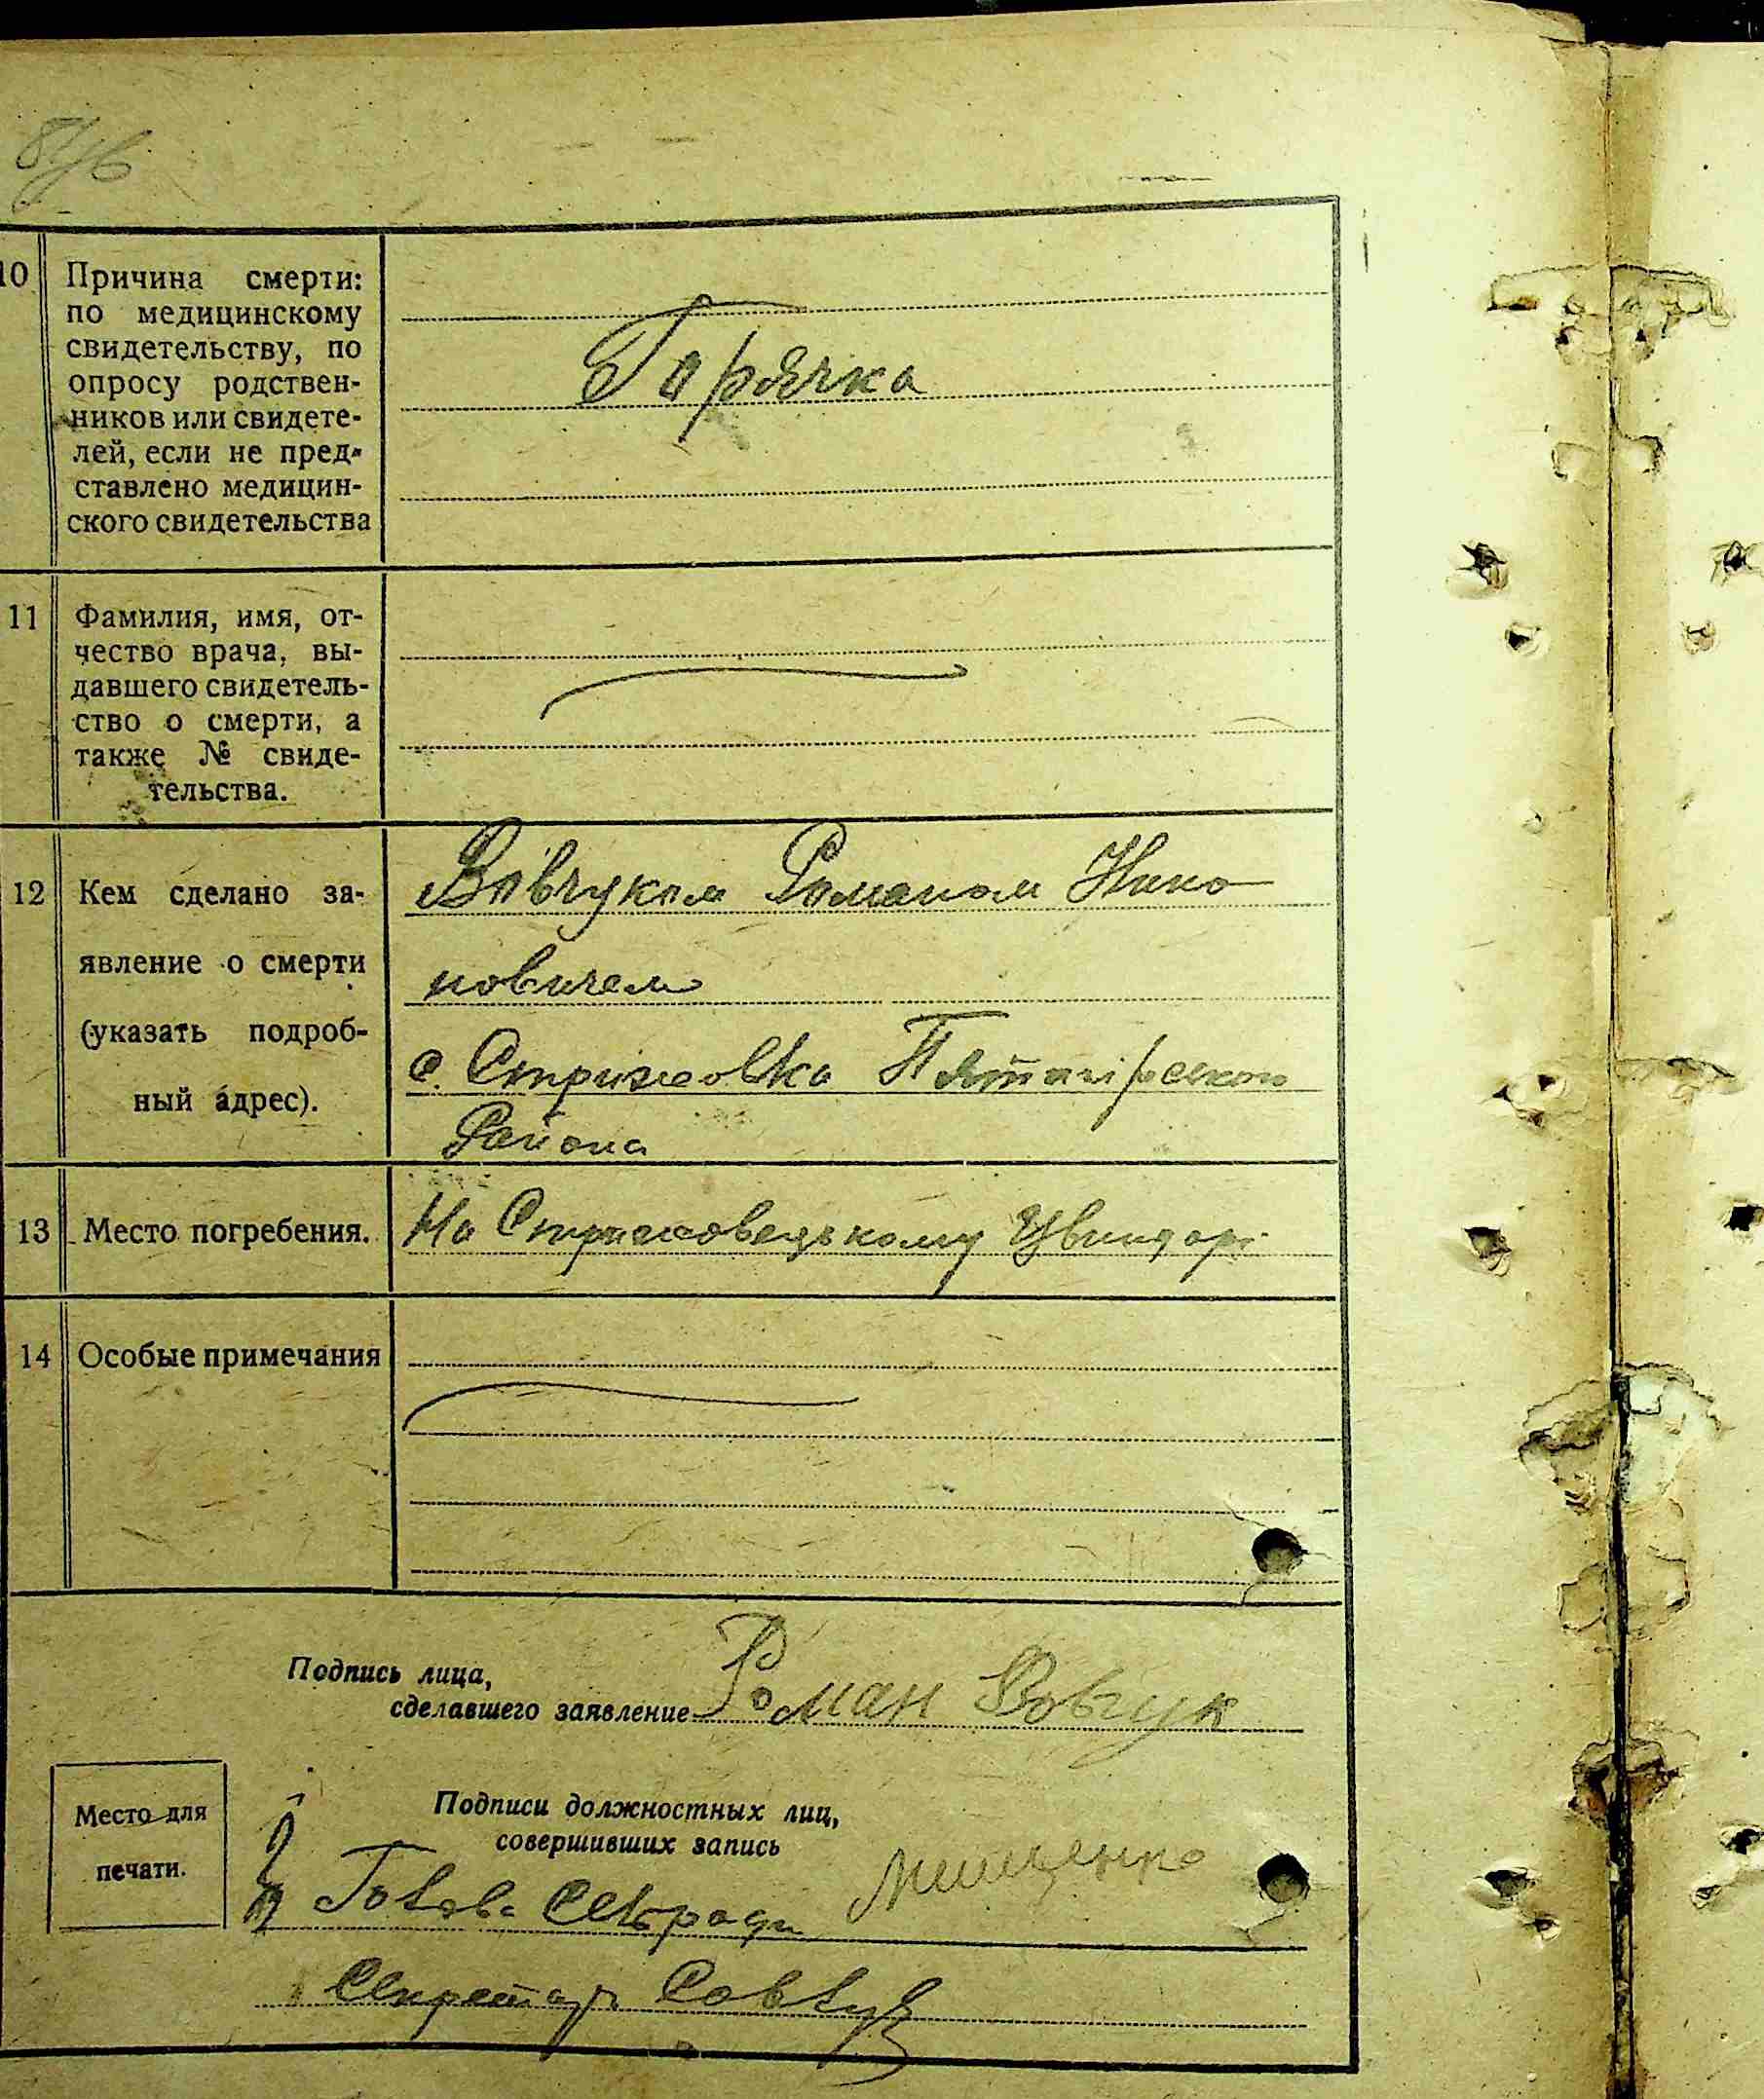 10 Причина смерти:
по медицинскому
свидетельству, по
опросу родствен-
ников или свидете-
лей, если не пред-
ставлено медицин-
ского свидетельства
Горячка
11 Фамилия, имя, от-
чество врача, вы-
давшего свидетель-
ство о смерти, а
также № свиде-
тельства.
12 Кем сделано за-
явление о смерти
(указать подроб-
ный адрес).
Вовчуком Романом Нико
новичем
с. Стрижовка
Района
13 Место погребения.
На Стрижовецькому Цвинтарі
14 Особые примечания
Подпись лица,
сделавшего заявление Роман Вовчук
Место для
печати.
Подписи должностных лиц,
совершивших запись
Голова С/Ради Мищенко
Секретарь